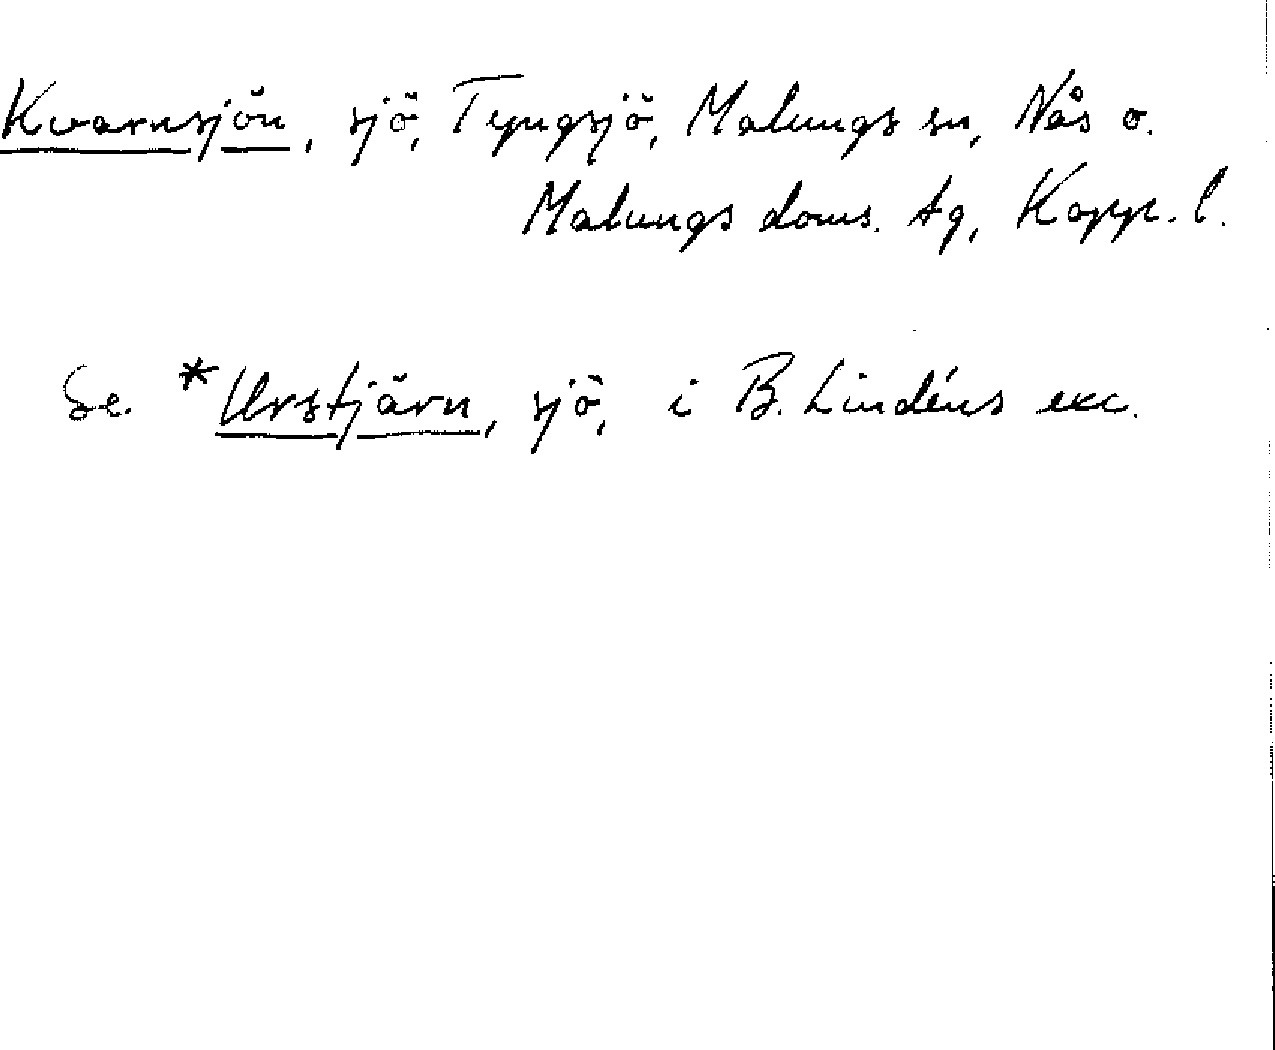 Kvarnsjön, sjö, Tyngsjö, Malungs sn, Nås o.
Malungs doms. tg, Kopp. l.
Se *Urstjärn, sjö, i B. Lindéns exc.